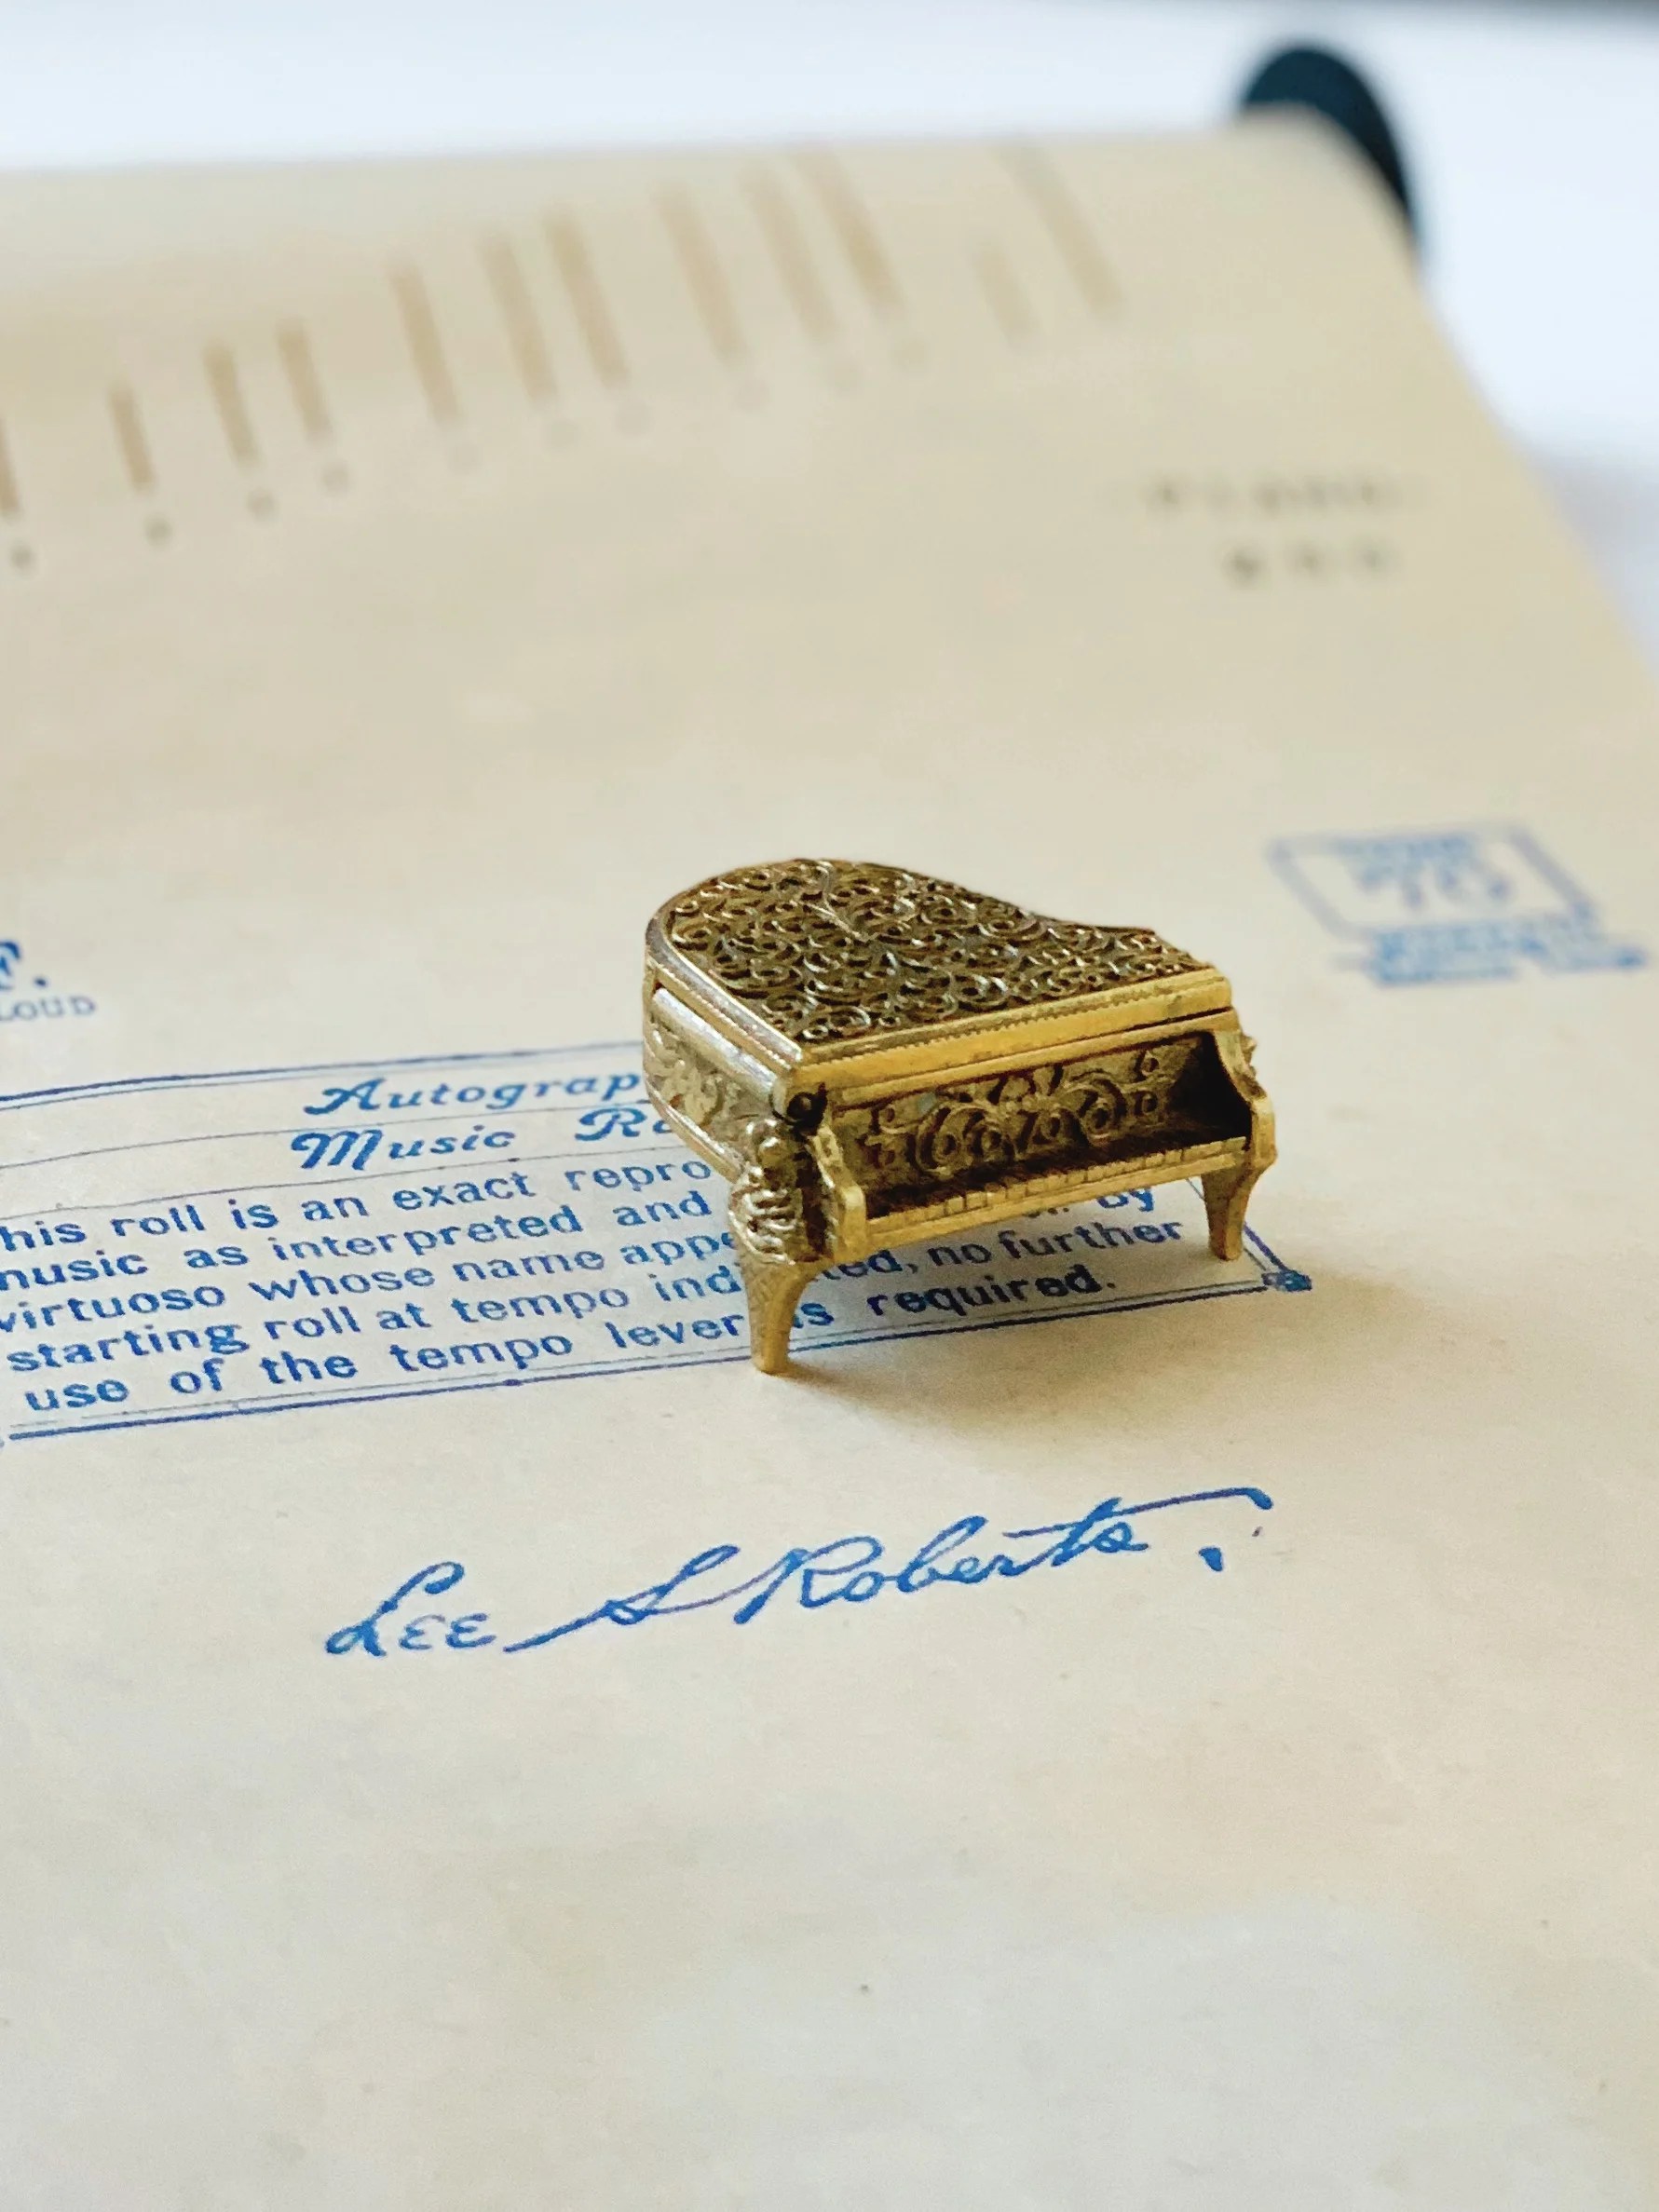 70
F.
LOUD
Autograp
Music
his roll is an exact repro
music as interpreted and By
virtuoso whose name appe ted, no further
starting roll at tempo ind is required.
use of the tempo lever
Lee S Roberts